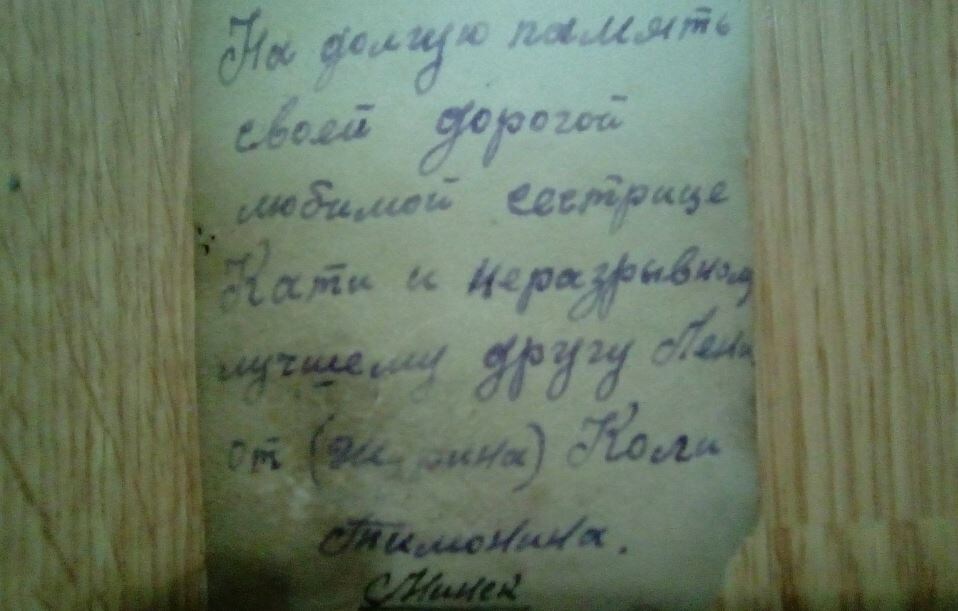 На долгую память
своей дорогой
любимой сестрице
Кати и неразрывному
лучшему другу Лени
от Коли
Тимонина.